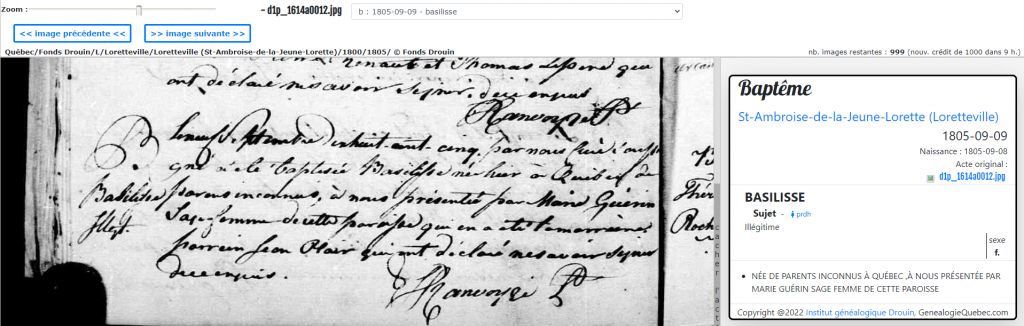 Zoom :
– d1p_1614a0012.jpg
b : 1805-09-09 - basilisse
<< image précédente <<
>> image suivante >>
Québec/Fonds Drouin/L/Loretteville/Loretteville (St-Ambroise-de-la-Jeune-Lorette)/1800/1805/ © Fonds Drouin
nb. images restantes : 999 (nouv. crédit de 1000 dans 9 h.)
et Thomas que
ont déclaré
de ce enquis
B
Le neuf Septembre mil huit cent cinq, par nous
a été baptisée Basilisse née hier à Québec de
Basilisse
parens inconnus, à nous présentée par Marie Guérin
Illegt.
Sage femme de cette paroisse qui en a été la marraine
parrein Jean qui ont déclaré ne savoir signer
de ce enquis.
Thér
Roch
cacher l'act
Baptême
St-Ambroise-de-la-Jeune-Lorette (Loretteville)
1805-09-09
Naissance : 1805-09-08
Acte original :
d1p_1614a0012.jpg
BASILISSE
Sujet - prdh
Illégitime
sexe
f.
• NÉE DE PARENTS INCONNUS À QUÉBEC ,À NOUS PRÉSENTÉE PAR
MARIE GUÉRIN SAGE FEMME DE CETTE PAROISSE
Copyright @2022 Institut généalogique Drouin, GenealogieQuebec.com